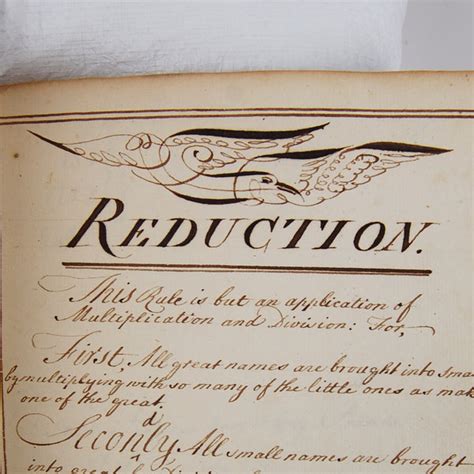 REDUCTION.
This Rule is but an application of
Multiplication and Division: For,
First, All great names are brought into sma
by multiplying with so many of the little ones as mak
one of the great
Seconly d All small names are brought